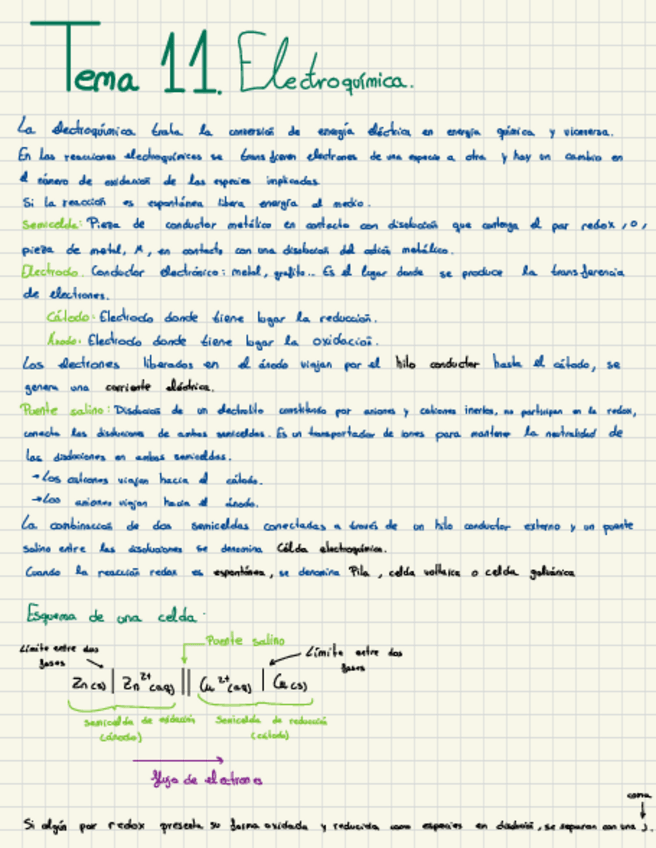 Tema 11. Electroquímica.
La electroquímica trata la conversión de energía eléctrica en energía química y viceversa.
En las reacciones electroquímicas se transfieren electrones de una especie a otra y hay un cambio en
el número de oxidación de las especies implicadas
Si la reacción es espontánea libera energía al medio.
Semicelda: Pieza de conductor metálico en contacto con disolución que contenga el par redox, o,
pieza de metal, M, en contacto con una disolución del catión metálico.
Electrodo. Conductor electrónico: metal, grafito... Es el lugar donde se produce la transferencia
de electrones.
Cátodo: Electrodo donde tiene lugar la reducción.
Ánodo: Electrodo donde tiene lugar la oxidación.
Los electrones liberados en el ánodo viajan por el hilo conductor hasta el cátodo, se
genera una corriente eléctrica.
Puente salino: Disolución de un electrolito constituido por aniones y cationes inertes, no participan en la redox,
conecta las disoluciones de ambas semiceldas. Es un transportador de iones para mantener la neutralidad de
las disoluciones en ambas semiceldas.
→ Los cationes viajan hacia el cátodo.
→ Los aniones viajan hacia el ánodo.
La combinación de dos semiceldas conectadas a través de un hilo conductor externo y un puente
salino entre las disoluciones se denomina Célda electroquímica.
Cuando la reacción redox es espontánea, se denomina Pila, celda voltaica o celda galvánica
Esquema de una celda:
Puente salino
Límite entre dos
fases
Límite entre dos
fases
Zn(s) | Zn²⁺(aq) || Cu²⁺(aq) | Cu(s)
Semicelda de oxidación
(ánodo)
Semicelda de reducción
(cátodo)
flujo de electrones
coma
Si algún par redox presenta su forma oxidada y reducida como especies en disolución, se separan con una ,.